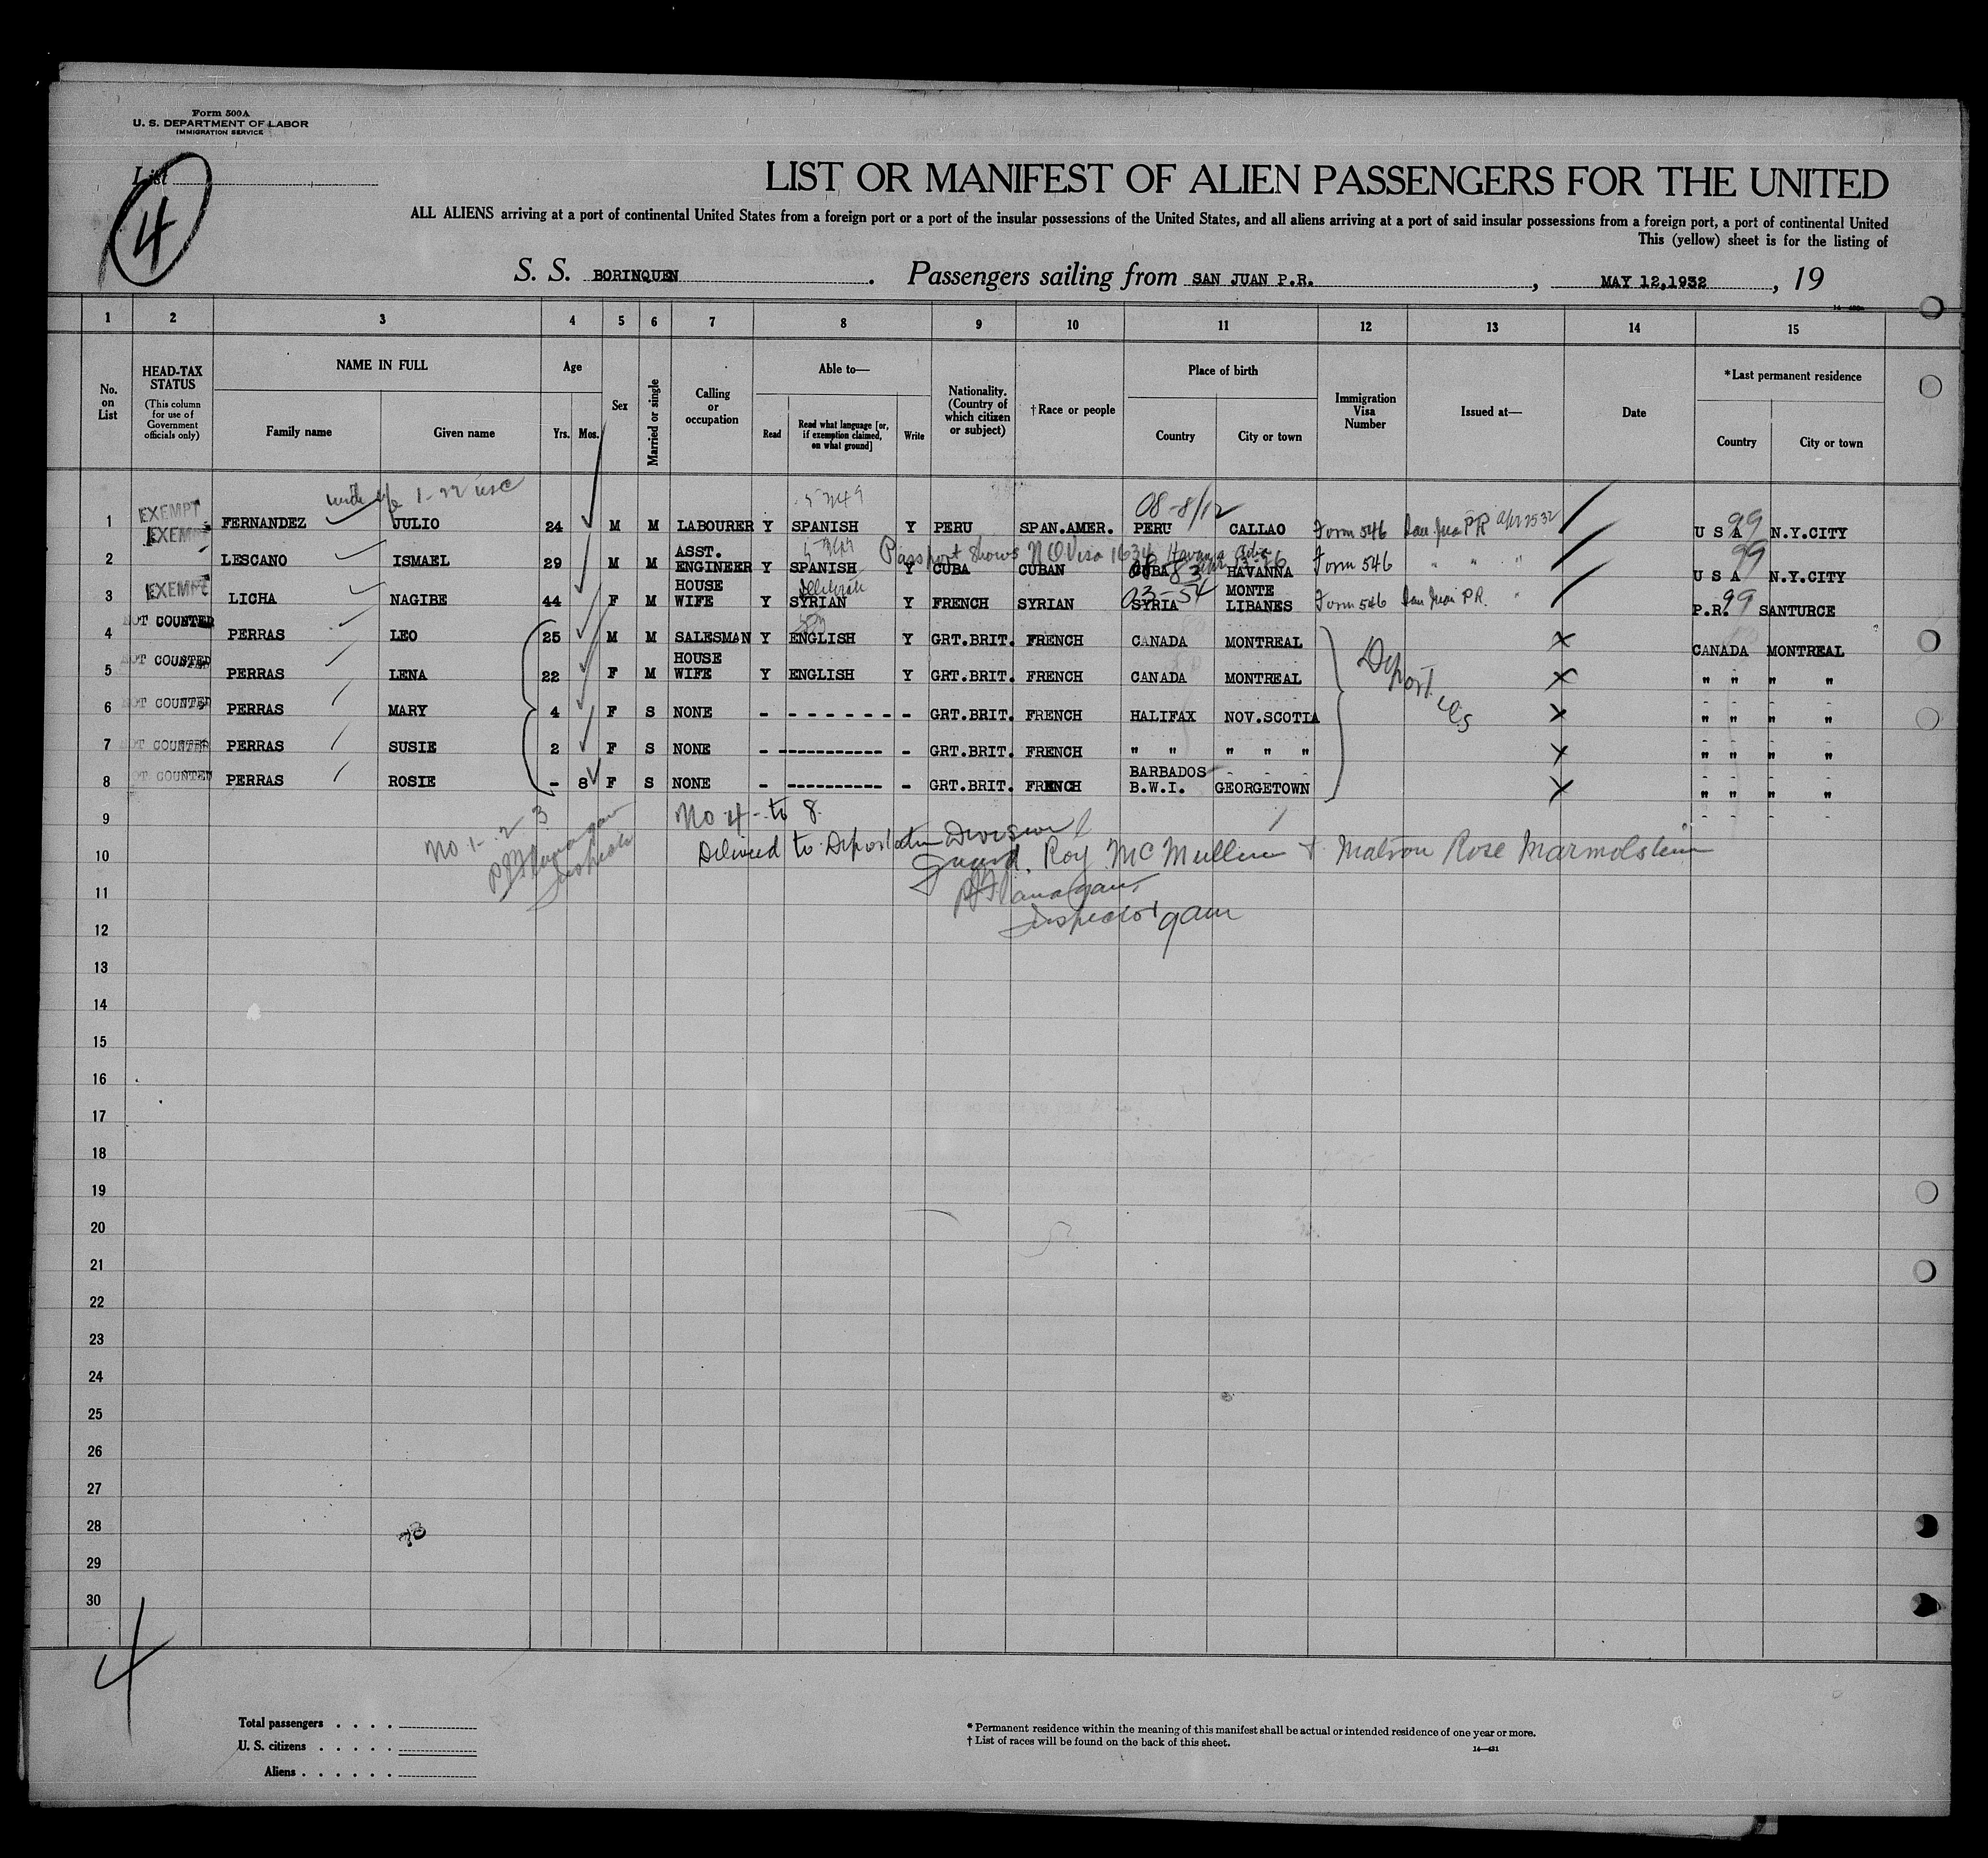 Form 500A
U. S. DEPARTMENT OF LABOR
IMMIGRATION SERVICE
List
4
LIST OR MANIFEST OF ALIEN PASSENGERS FOR THE UNITED
ALL ALIENS arriving at a port of continental United States from a foreign port or a port of the insular possessions of the United States, and all aliens arriving at a port of said insular possessions from a foreign port, a port of continental United
This (yellow) sheet is for the listing of
S. S. BORINQUEN. Passengers sailing from SAN JUAN P.R., MAY 12,1932, 19
1 2 3 4 5 6 7 8 9 10 11 12 13 14 15
No. on List
HEAD-TAX STATUS (This column for use of Government officials only)
NAME IN FULL
Family name Given name
Age
Yrs. Mos.
Sex
Married or single
Calling or occupation
Able to—
Read
Read what language [or, if exemption claimed, on what ground]
Write
Nationality. (Country of which citizen or subject)
†Race or people
Place of birth
Country City or town
Immigration Visa Number
Issued at—
Date
*Last permanent residence
Country City or town
1-22 usc
08-8/12
1 EXEMPT FERNANDEZ JULIO 24 M M LABOURER Y SPANISH Y PERU SPAN.AMER. PERU CALLAO Form 546 San Juan PR U S A 99 N.Y.CITY
EXEMPT
Passport shows Havana Cuba
2 LESCANO ISMAEL 29 M M ASST. ENGINEER Y SPANISH Y CUBA CUBAN CUBA HAVANNA Form 546 " " " U S A 99 N.Y.CITY
03-54
3 EXEMPT LICHA NAGIBE 44 F M HOUSE WIFE Y SYRIAN Y FRENCH SYRIAN SYRIA MONTE LIBANES Form 546 San Juan P.R. " P.R. 99 SANTURCE
4 NOT COUNTED PERRAS LEO 25 M M SALESMAN Y ENGLISH Y GRT.BRIT. FRENCH CANADA MONTREAL X CANADA MONTREAL
5 NOT COUNTED PERRAS LENA 22 F M HOUSE WIFE Y ENGLISH Y GRT.BRIT. FRENCH CANADA MONTREAL X " " " "
6 NOT COUNTED PERRAS MARY 4 F S NONE - - - - - - - - GRT.BRIT. FRENCH HALIFAX NOV.SCOTIA X " " " "
7 NOT COUNTED PERRAS SUSIE 2 F S NONE - ----------- - GRT.BRIT. FRENCH " " " " " X " " " "
8 NOT COUNTED PERRAS ROSIE - 8 F S NONE - ---------- - GRT.BRIT. FRENCH BARBADOS B.W.I. GEORGETOWN X " " " "
Deportees
9
No 1-2 3
No 4 - to 8
Delivered to Deportation Division
10
Guard Roy McMullin + Matron Rose Marmolstein
Inspector
11
Inspector
12
13
14
15
16
17
18
19
20
21
22
23
24
25
26
27
28
29
30
4
Total passengers . . . .
U. S. citizens . . . . .
Aliens . . . . . .
* Permanent residence within the meaning of this manifest shall be actual or intended residence of one year or more.
† List of races will be found on the back of this sheet.
14—431